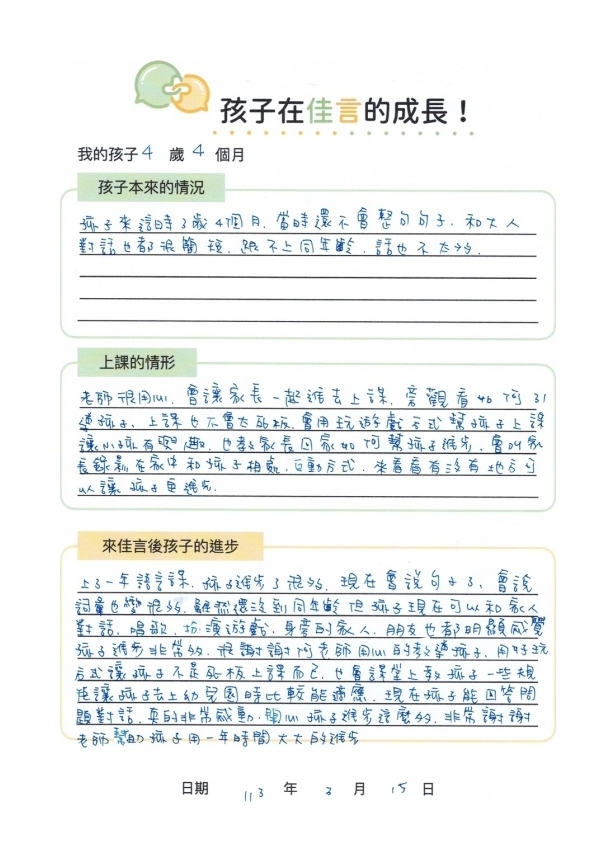 孩子在佳言的成長！
我的孩子 4 歲 4 個月
孩子本來的情況
孩子來這時3歲4個月，當時還不會整句句子，和大人
對話也都很簡短，跟不上同年齡，話也不太多，
上課的情形
老師很用心，會讓家長一起進去上課，旁觀看如何引
導孩子，上課也不會太死板，會用玩遊戲方式幫孩子上課
讓小孩有興趣，也教家長回家如何幫孩子進步，會叫家
長錄影在家中和孩子相處，互動方式，來看看有沒有地方可
以讓孩子更進步.
來佳言後孩子的進步
上了一年語言課，孩子進步了很多，現在會說句子了、會說
詞彙也變很多，雖然還沒到同年齡但孩子現在可以和家人
對話，唱歌，扮演遊戲，身旁的家人，朋友也都明顯感覺
孩子進步非常多，很謝謝阿老師用心的教導孩子，用好玩
方式讓孩子不是死板上課而已，也會課堂上教孩子一些規
矩讓孩子去上幼兒園時比較能適應，現在孩子能回答問
題對話，真的非常感動，開心孩子進步這麼多，非常謝謝
老師幫助孩子用一年時間大大的進步
日期 113 年 3 月 15 日